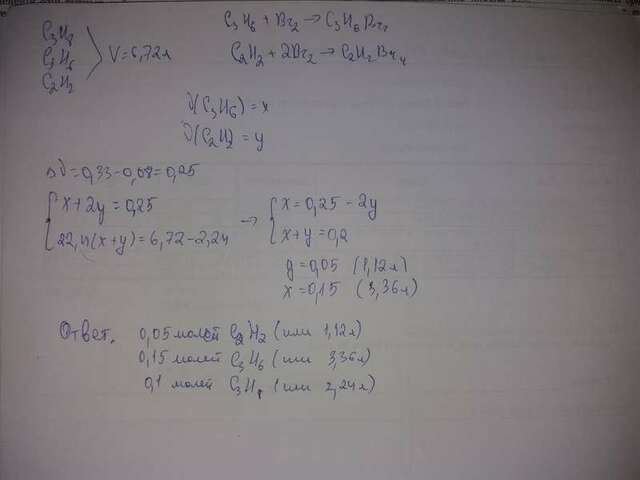 C3H8
C3H6
C2H2
V=6,72л
C3H6 + Br2 → C3H6Br2
C2H2 + 2Br2 → C2H2Br4
ν(C3H6) = x
ν(C2H2) = y
Δν = 0,33 - 0,08 = 0,25
{ x + 2y = 0,25
22,4(x+y) = 6,72 - 2,24
→ { x = 0,25 - 2y
x + y = 0,2
y = 0,05 (1,12л)
x = 0,15 (3,36л)
Ответ. 0,05 молей C2H2 (или 1,12л)
0,15 молей C3H6 (или 3,36л)
0,1 молей C3H8 (или 2,24л)